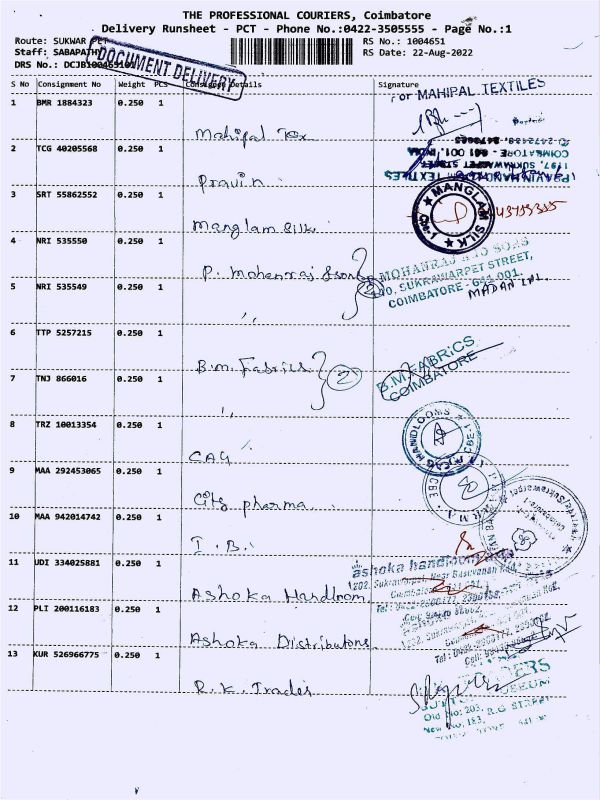 THE PROFESSIONAL COURIERS, Coimbatore
Delivery Runsheet - PCT - Phone No.:0422-3505555 - Page No.:1
Route: SUKWAR PET
RS No.: 1004651
Staff: SABAPATHY
RS Date: 22-Aug-2022
DRS No.: DCJB100465101
DOCUMENT DELIVERY
S No Consignment No Weight PCS Consignee Details Signature
1 BMR 1884323 0.250 1
Mahipal Tex
For MAHIPAL TEXTILES
2 TCG 40205568 0.250 1
Pravin
PRAVIN HANDLOOM TEXTILES
197, SUKRAWARPET STREET
COIMBATORE - 641 001. INDIA
3 SRT 55862552 0.250 1
Manglam Silk.
★ MANGLAM SILK ★
4 NRI 535550 0.250 1
P. Mohanraj & sons
2
MOHANRAJ AND SONS
SUKRAWARPET STREET,
COIMBATORE - 641 001.
MADAN LAL
5 NRI 535549 0.250 1
,,
6 TTP 5257215 0.250 1
B.M. Fabrics
2
B.M.FABRiCS
COIMBATORE
7 TNJ 866016 0.250 1
,,
8 TRZ 10013354 0.250 1
CAG
CAG HANDLOOMS
CBE-1
9 MAA 292453065 0.250 1
City pharma
10 MAA 942014742 0.250 1
I. B.
11 UDI 334025881 0.250 1
Ashoka Handloom
ashoka handloom
12 PLI 200116183 0.250 1
Ashoka Distributors
13 KUR 526966775 0.250 1
R. K. Trades
Old No: 203, R.G STREET
New No. 183,